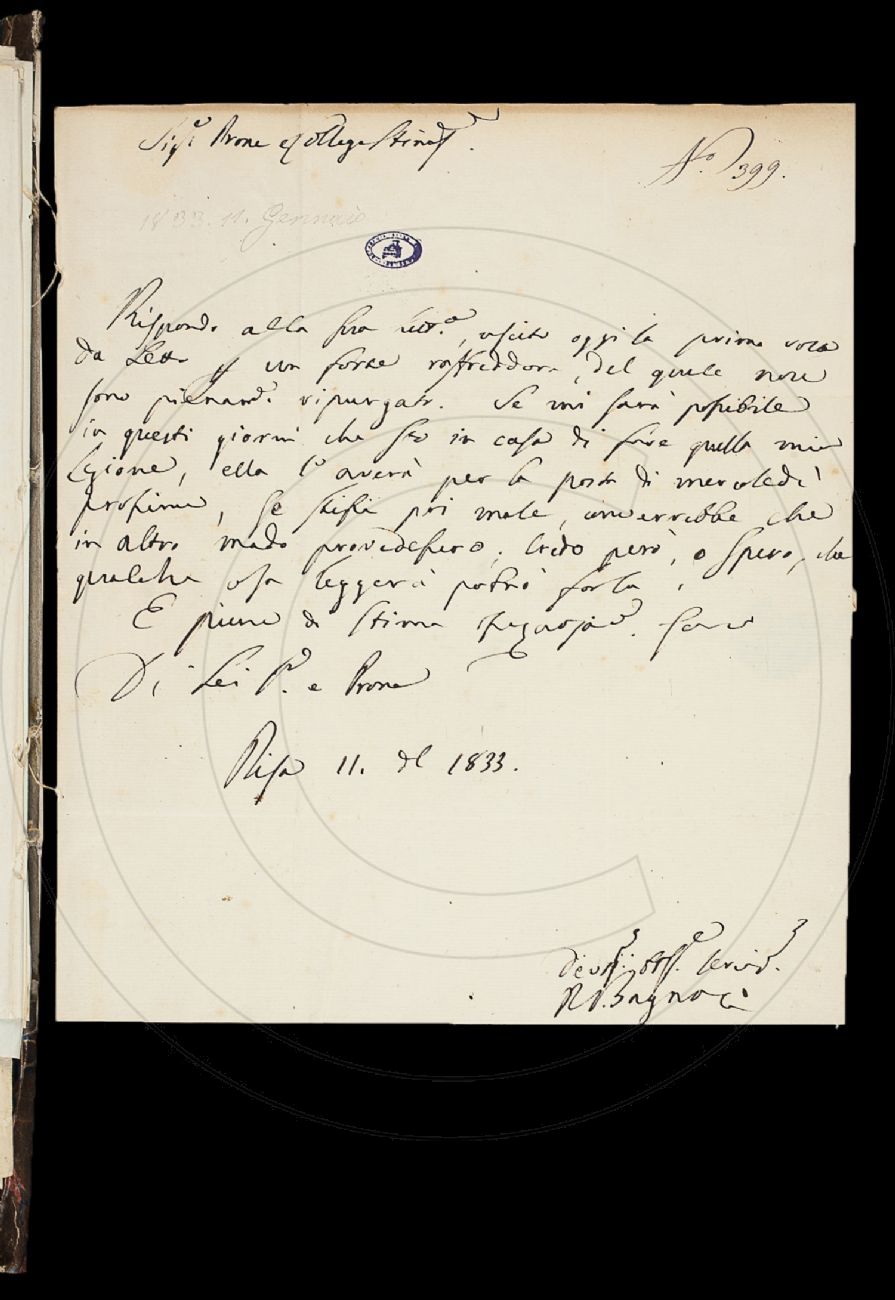 Sig.r Prone e Collega Stimat.
N.o 399.
1833. 11. Gennaio
Rispondo alla sua ult.a, uscito oggi la prima volta
da Letto p un forte raffreddore, del quale non
sono pienam.e ripurgato. Se mi sarà possibile
in questi giorni che sto in casa di fare quella mia
Lezione, ella l'averà per la posta di mercoledì
prossimo, se stassi poi male, converrebbe che
in altro modo provedessero; Credo però, o spero, che
qualche cosa leggera potrò farla.
E pieno di stima sono
Di Lei S.r e Prone
Pisa 11. del 1833.
Devot. Obb. Servid.
Bagnoli